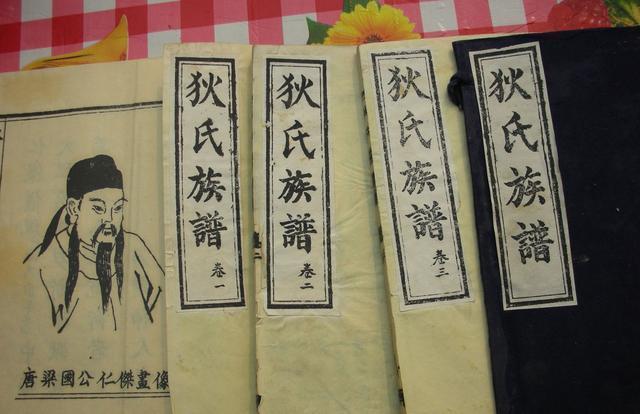 狄氏族譜 卷一
狄氏族譜 卷二
狄氏族譜 卷三
狄氏族譜
唐梁國公仁傑畫像